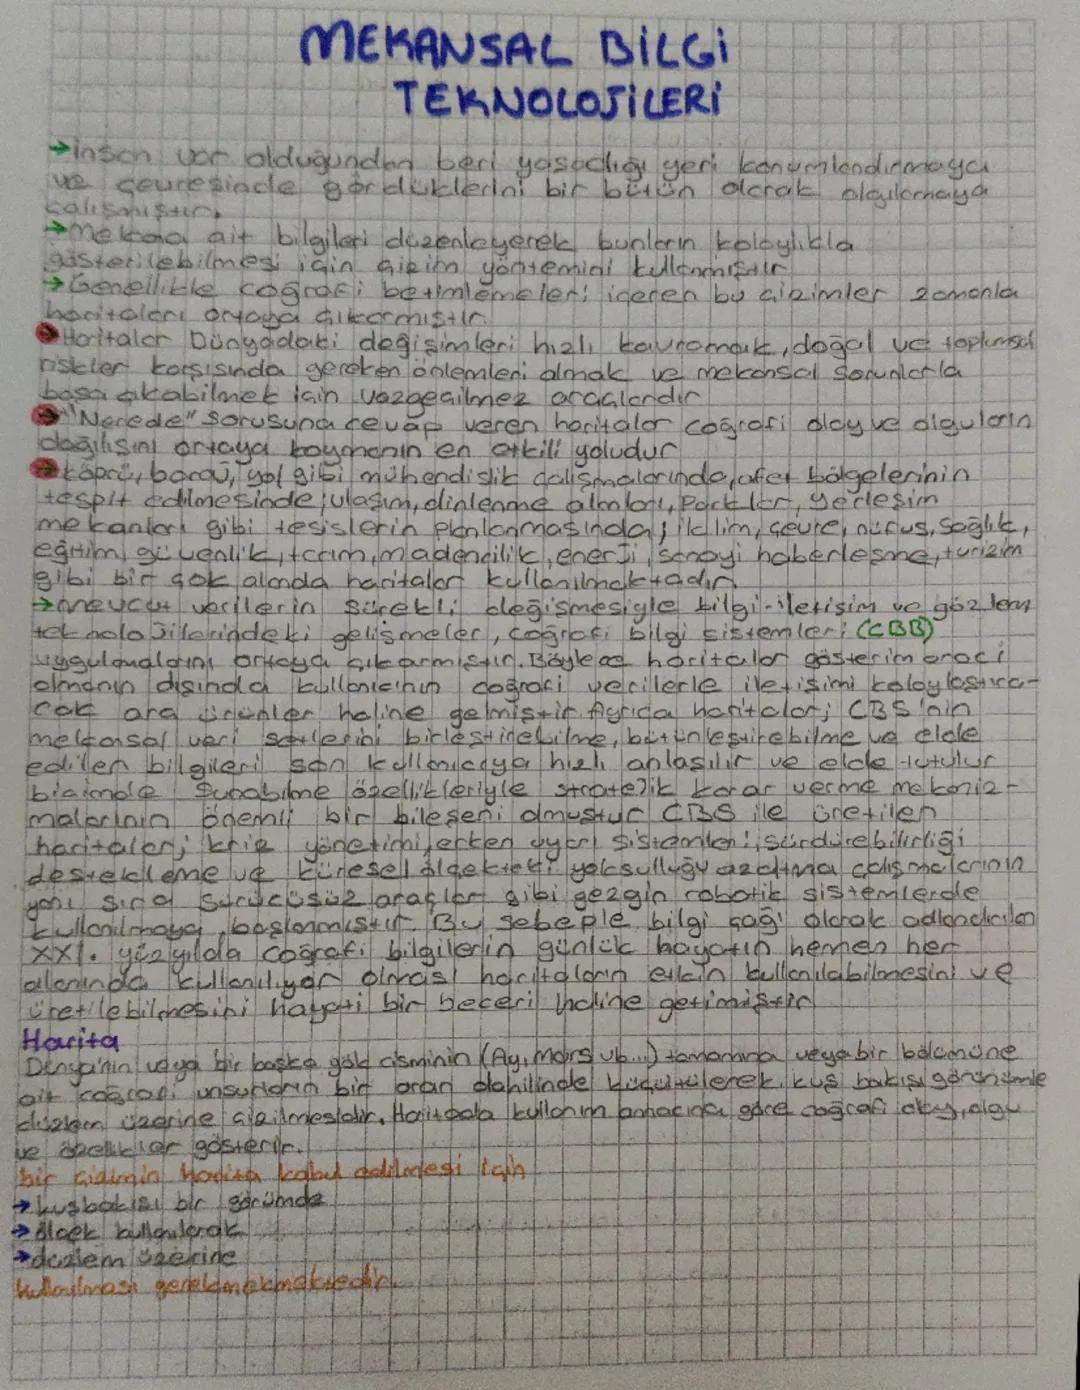 MEKANSAL BİLGİ
TEKNOLOJİLERİ
→insan var olduğundan beri yaşadığı yeri konumlandırmaya
ve çevresinde gördüklerini bir bütün olarak algılamaya
çalışmıştır.
→Mekana ait bilgileri düzenleyerek bunların kolaylıkla
gösterilebilmesi için çizim yöntemini kullanmıştır
→Genellikle coğrafi betimlemeleri içeren bu çizimler zamanla
haritaları ortaya çıkarmıştır.
→Haritalar Dünyadaki değişimleri hızlı kavramak, doğal ve toplumsal
riskler karşısında gereken önlemleri almak ve mekansal sorunlarla
başa çıkabilmek için vazgeçilmez araçlardır
→"Nerede" sorusuna cevap veren haritalar coğrafi olay ve olguların
dağılışını ortaya koymanın en etkili yoludur
→köprü, baraj, yol gibi mühendislik çalışmalarında, afet bölgelerinin
tespit edilmesinde; ulaşım, dinlenme alanları, Parklar, yerleşim
mekanları gibi tesislerin planlanmasında; iklim, çevre, nüfus, sağlık,
eğitim, güvenlik, tarım, madencilik, enerji, sanayi haberleşme, turizim
gibi bir çok alanda haritalar kullanılmaktadır
→mevcut verilerin sürekli değişmesiyle bilgi-iletişim ve gözlem
teknolojilerindeki gelişmeler, coğrafi bilgi sistemleri (CBB)
uygulamalarını ortaya çıkarmıştır. Böylece haritalar gösterim aracı
olmanın dışında kullanıcının coğrafi verilerle iletişimi kolaylaştıra-
cak ara ürünler haline gelmiştir. Ayrıca haritalar; CBS'nin
mekansal veri setlerini birleştirebilme, bütünleştirebilme ve elde
edilen bilgileri son kullanıcıya hızlı anlaşılır ve elde tutulur
biçimde sunabilme özellikleriyle stratejik karar verme mekaniz-
malarının önemli bir bileşeni olmuştur CBS ile üretilen
haritalar; kriz yönetimi, erken uyarı sistemleri, sürdürebilirliği
destekleme ve küresel ölçekteki yoksulluğu azaltma çalışmalarının
yanı sıra sürücüsüz araçlar gibi gezgin robotik sistemlerde
kullanılmaya başlanmıştır. Bu sebeple bilgi çağı olarak adlandırılan
XXI. yüzyılda coğrafi bilgilerin günlük hayatın hemen her
alanında kullanılıyor olması haritaların etkin kullanılabilmesini ve
üretilebilmesini hayati bir beceri haline getirmiştir
Harita
Dünya'nın veya bir başka gök cisminin (Ay, Mars vb...) tamamına veya bir bölümüne
ait coğrafi unsurların bir oran dahilinde küçültülerek, kuş bakışı görünümle
düzlem üzerine çizilmesidir. Haritada kullanım amacına göre coğrafi olay, olgu
ve özellikler gösterir.
bir çizimin harita kabul edilmesi için
→kuşbakışı bir görümde
→ölçek kullanılarak
→düzlem üzerine
kullanılması gerekmekmektedir.